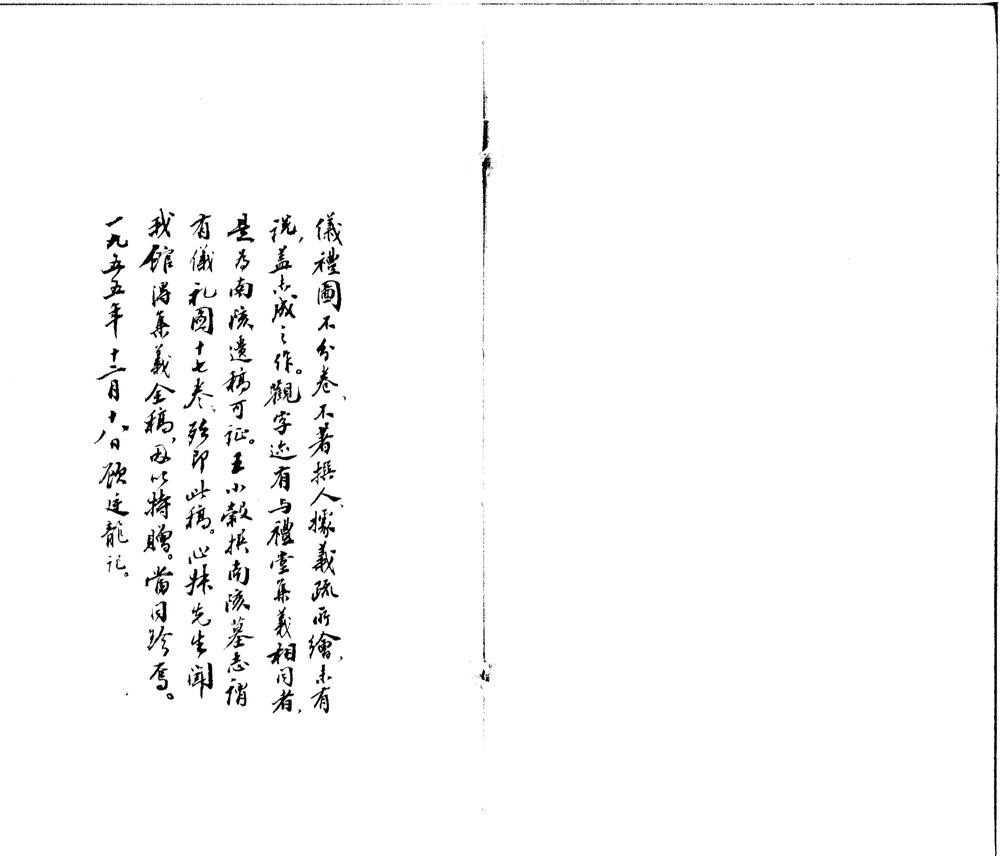 儀禮圖不分卷、不著撰人、據義疏所繪、未有
說、蓋未成之作。觀字迹有与禮堂集義相同者、
是為南陔遺稿可证。王小穀撰南陔墓志謂
有儀礼圖十七卷、殆即此稿。心抹先生闻
我館得集義全稿、因以特贈。當同珍焉。
一九五五年十二月十八日顾廷龍记。